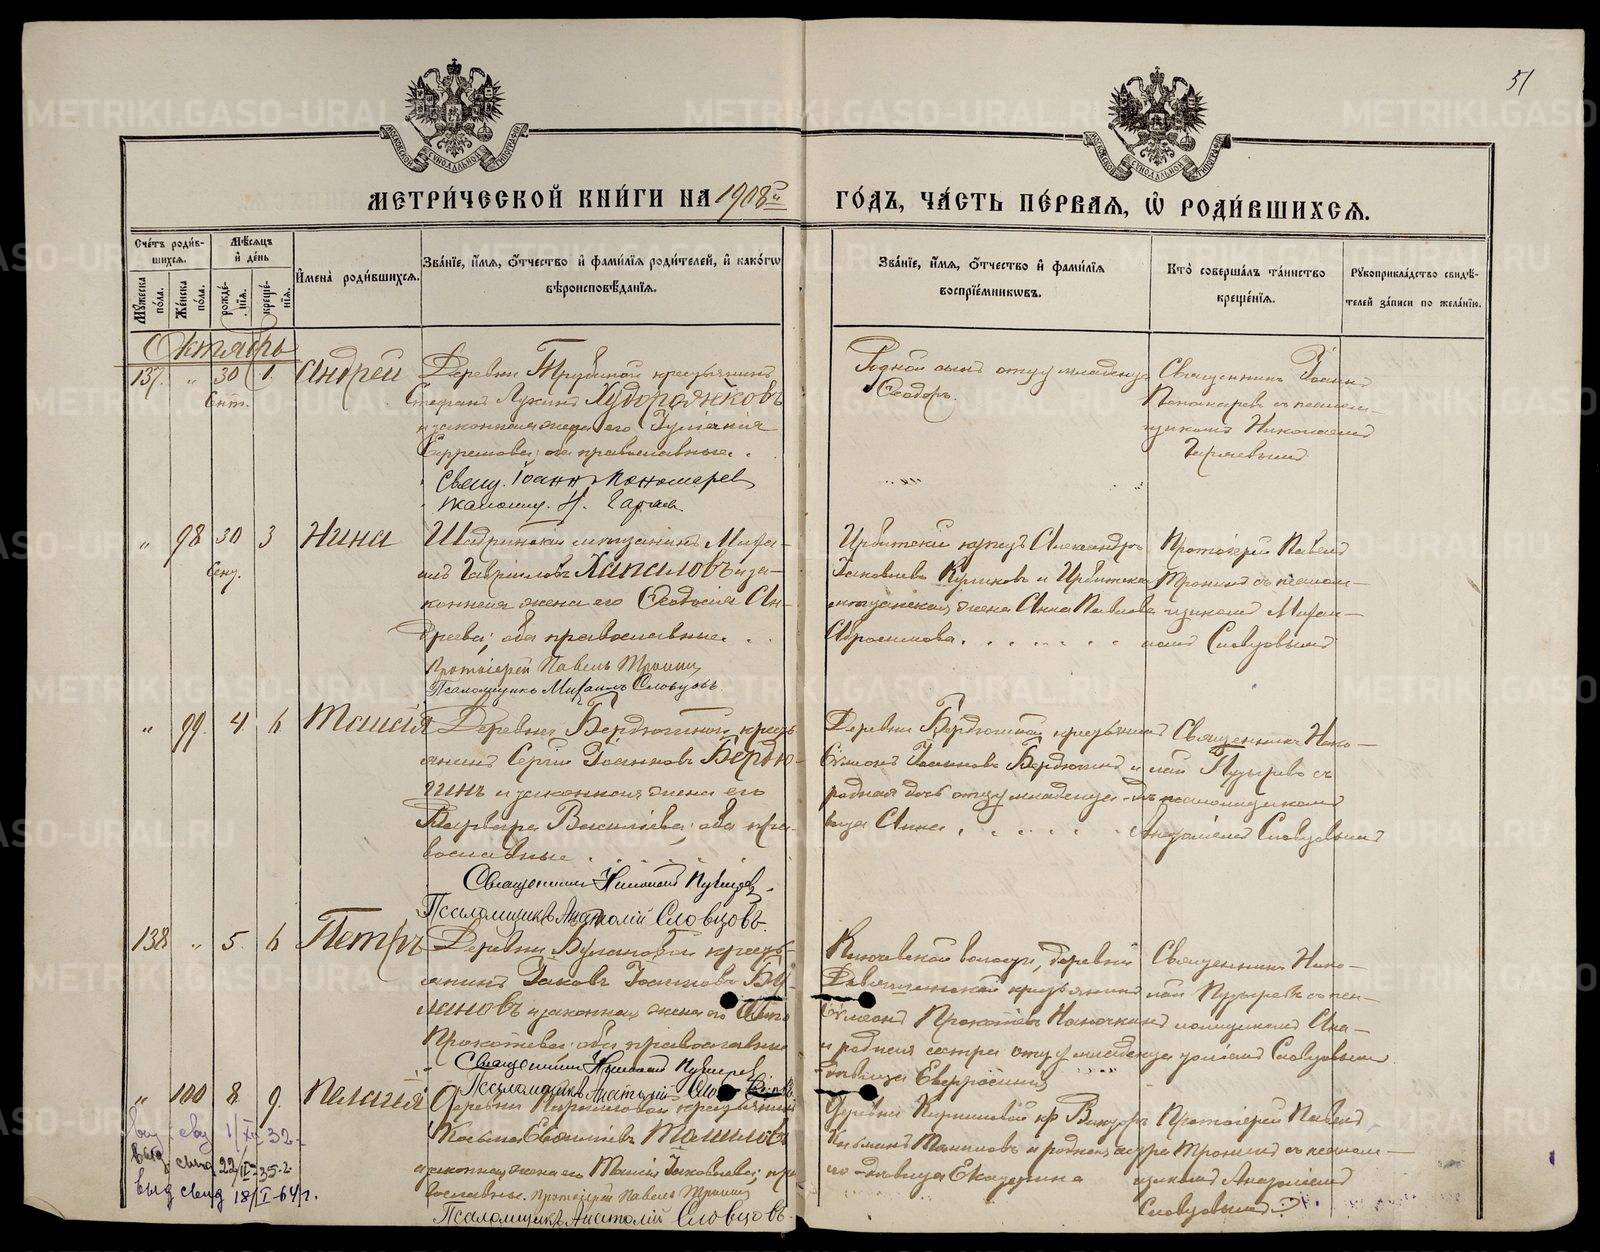 51
МЕТРИ́ЧЕСКОЙ КНИ́ГИ НА 1908й ГО́ДЪ, ЧА́СТЬ ПЕ́РВАЯ, Ѡ҆ РОДИ́ВШИХСЯ.
Сче́тъ роди́в-
шихся.
Мѣ́сяцъ
и҆ де́нь
Мꙋ́жеска по́ла.
Же́нска по́ла.
рожде́-
нїѧ.
креще́-
нїѧ.
И҆мена̀ роди́вшихся.
Зва́нїе, и҆́мя, ѻ҆́тчество и҆ фами́лїя роди́телей, и҆ како́гѡ
вѣроисповѣ́данїя.
Зва́нїе, и҆́мя, ѻ҆́тчество и҆ фами́лїя
воспрїе́мникѡвъ.
Кто̀ соверша́лъ та́инство
креще́нїя.
Рꙋкоприкла́дство свидѣ́-
телей за́писи по жела́нїю.
Октябрь
137. " 30 1. Андрей
Сент.
Деревни Трубиной крестьянинъ
Стефанъ Лукинъ Худорожковъ
и законная жена его
оба православные.
Свящ. Іоаннъ Пономарев
Псаломщ. Н. Гаряев.
Родной сынъ отцу младенца
Ѳеодоръ.
Священникъ Іоаннъ
Пономаревъ съ псалом-
щикомъ Николаемъ
Гаряевымъ
" 98 30 3 Нина
Сент.
Шадринскій мѣщанинъ Миха-
илъ Гавриловъ Хапаловъ и за-
конная жена его Ѳеодосія Ан-
дреева; оба православные.
Протоіерей Павелъ Тронинъ
Псаломщикъ Михаилъ Словцовъ.
Ирбитскій купецъ Александръ
Іаковлевъ Куликовъ и Ирбитская
мѣщанская жена Анна Павлова
Абросимова.
Протоіерей Павелъ
Тронинъ съ псалом-
щикомъ Миха-
иломъ Словцовымъ
" 99. 4. 6 Таисія
Деревни Бердюгиной кресть-
янинъ Сергій Іоанновъ Бердю-
гинъ и законная жена его
Варвара Васильева; оба пра-
вославные.
Священникъ Николай Пузырев
Псаломщикъ Анатолій Словцовъ.
Деревни Бердюгиной крестьянинъ
Сѵмеонъ Іоанновъ Бердюгинъ и
родная дочь отцу младенца дѣ-
вица Анна
Священникъ Нико-
лай Пузыревъ съ
псаломщикомъ
Анатоліемъ Словцовымъ
138 " 5. 6 Петръ
Деревни Булановой кресть-
янинъ Іаковъ Іоанновъ Бу-
лановъ и законная жена его
Прокопьева; оба православные
Священникъ Николай Пузырев
Псаломщикъ Анатолій
Ключевской волости, деревни
крестьянинъ
Сѵмеонъ Прокопьевъ
и родная сестра отцу младенца
дѣвица Евфросинія
Священникъ Нико-
лай Пузыревъ съ пса-
ломщикомъ Ана-
толіемъ Словцовымъ
" 100 8. 9. Пелагія
Деревни Кирилловой крестьянинъ
Косьма Томиловъ
и законная жена его Таисія Іаковлева; пра-
вославные. Протоіерей Павелъ Тронинъ
Псаломщикъ Анатолій Словцовъ.
Деревни Кирилловой кр. Викторъ
Косьминъ Томиловъ и родная сестра
его дѣвица Екатерина
Протоіерей Павелъ
Тронинъ съ псалом-
щикомъ Анатоліемъ
Словцовымъ
выд свид 1/XII 32
выд свид 22/II-35 г.
выд свид 18/I-64 г.
METRIKI.GASO-URAL.RU